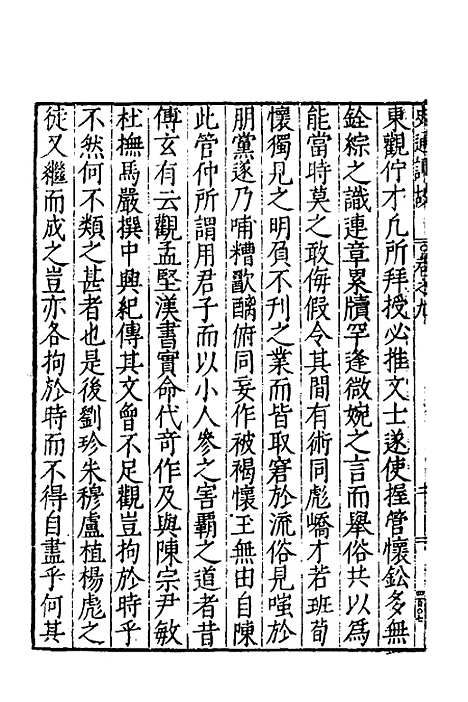 史通訓故
東觀佇才凡所拜授必推文士遂使握管懷鈆多無
銓綜之識連章累牘罕逢微婉之言而舉俗共以爲
能當時莫之敢侮假令其間有術同彪嶠才若班荀
懷獨見之明負不刊之業而皆取窘於流俗見嗤於
朋黨遂乃哺糟歠醨俯同妄作被褐懷玉無由自陳
此管仲所謂用君子而以小人參之害霸之道者昔
傅玄有云觀孟堅漢書實命代奇作及與陳宗尹敏
杜撫馬嚴撰中興紀傳其文曾不足觀豈拘於時乎
不然何不類之甚者也是後劉珍朱穆盧植楊彪之
徒又繼而成之豈亦各拘於時而不得自盡乎何其